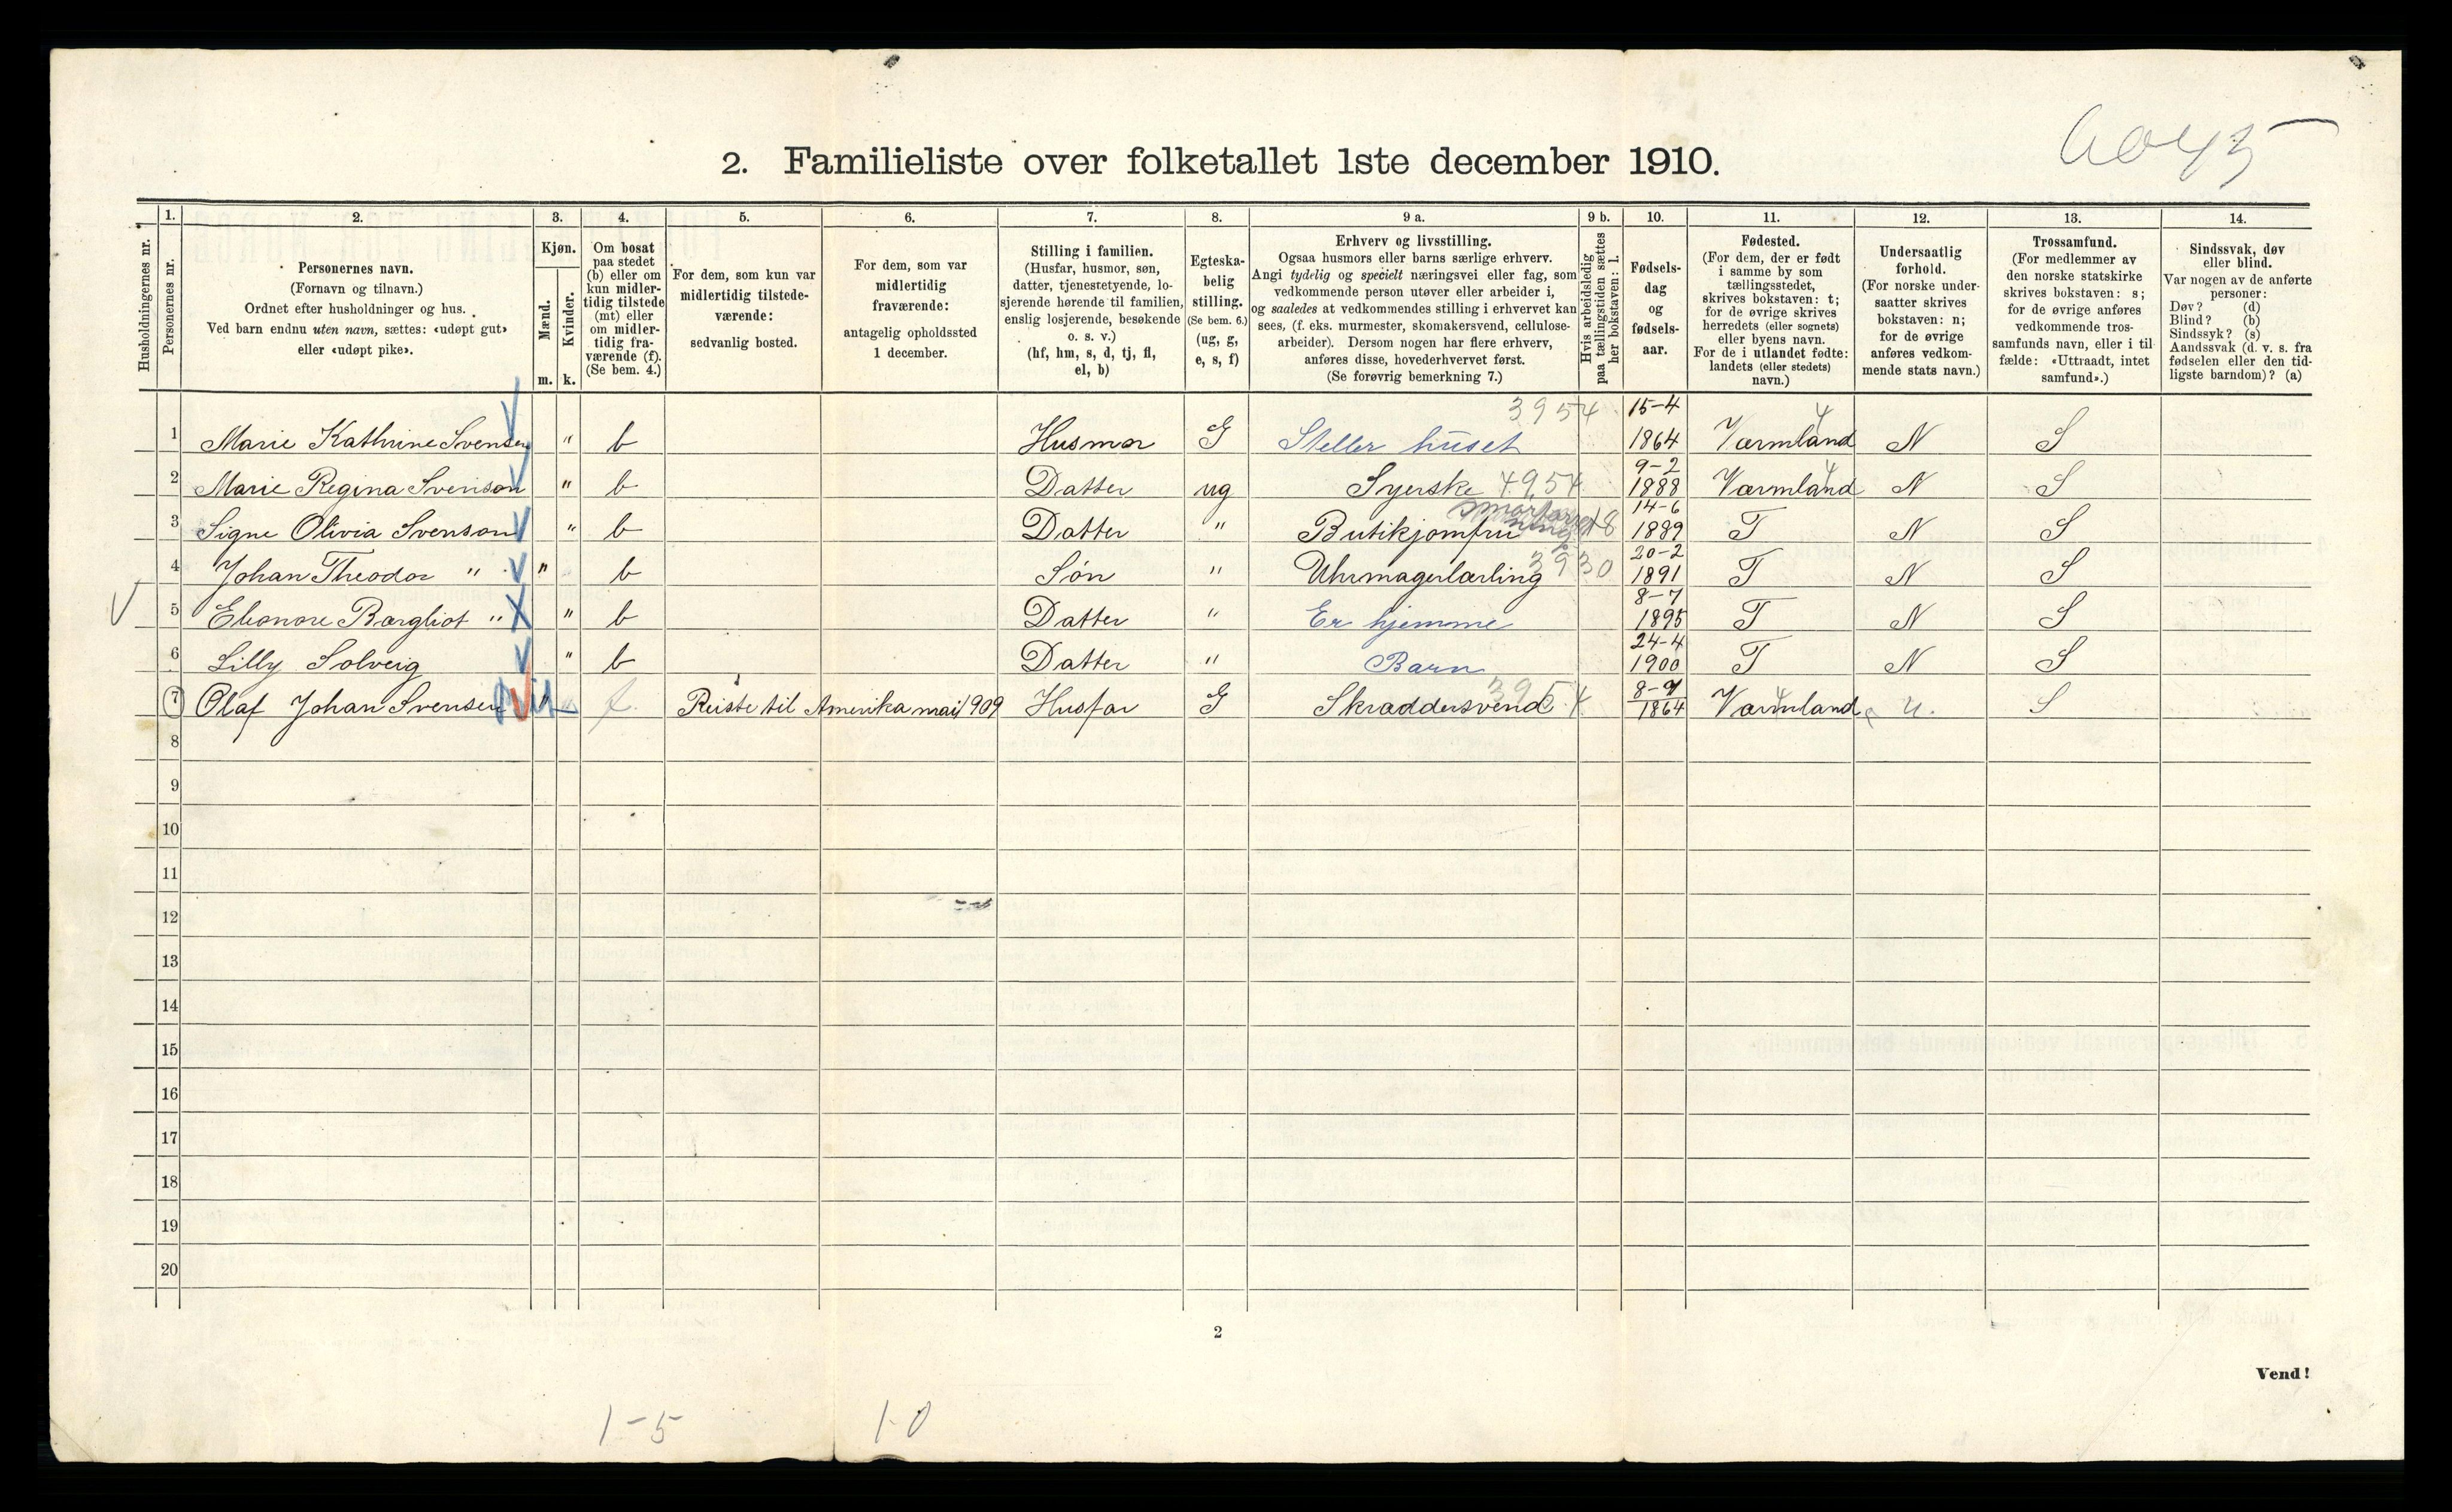 6045
2. Familieliste over folketallet 1ste december 1910.
Husholdningernes nr.
1. Personernes nr.
2. Personernes navn. (Fornavn og tilnavn.) Ordnet efter husholdninger og hus. Ved barn endnu uten navn, sættes: «udøpt gut» eller «udøpt pike».
3. Kjøn. Mænd. m. Kvinder. k.
4. Om bosat paa stedet (b) eller om kun midlertidig tilstede (mt) eller om midlertidig fraværende (f). (Se bem. 4.)
5. For dem, som kun var midlertidig tilstedeværende: sedvanlig bosted.
6. For dem, som var midlertidig fraværende: antagelig opholdssted 1 december.
7. Stilling i familien. (Husfar, husmor, søn, datter, tjenestetyende, losjerende hørende til familien, enslig losjerende, besøkende o. s. v.) (hf, hm, s, d, tj, fl, el, b)
8. Egteskabelig stilling. (Se bem. 6.) (ug, g, e, s, f)
9 a. Erhverv og livsstilling. Ogsaa husmors eller barns særlige erhverv. Angi tydelig og specielt næringsvei eller fag, som vedkommende person utøver eller arbeider i, og saaledes at vedkommendes stilling i erhvervet kan sees, (f. eks. murmester, skomakersvend, cellulosearbeider). Dersom nogen har flere erhverv, anføres disse, hovederhvervet først. (Se forøvrig bemerkning 7.)
9 b. Hvis arbeidsledig paa tællingstiden sættes her bokstaven: l.
10. Fødselsdag og fødselsaar.
11. Fødested. (For dem, der er født i samme by som tællingsstedet, skrives bokstaven: t; for de øvrige skrives herredets (eller sognets) eller byens navn. For de i utlandet fødte: landets (eller stedets) navn.)
12. Undersaatlig forhold. (For norske undersaatter skrives bokstaven: n; for de øvrige anføres vedkommende stats navn.)
13. Trossamfund. (For medlemmer av den norske statskirke skrives bokstaven: s; for de øvrige anføres vedkommende trossamfunds navn, eller i tilfælde: «Uttraadt, intet samfund».)
14. Sindssvak, døv eller blind. Var nogen av de anførte personer: Døv? (d) Blind? (b) Sindssyk? (s) Aandssvak (d. v. s. fra fødselen eller den tidligste barndom)? (a)
1 Marie Kathrine Svensen " b Husmor G Steller huset 3954 15-4 1864 Værmland 4 N S
2 Marie Regina Svenson " b Datter ug Syerske 4954 9-2 1888 Værmland 4 N S
3 Signe Olivia Svenson " b Datter " Butikjomfru 14-6 1889 T N S
4 Johan Theodor " " b Søn " Uhrmagerlærling 3930 20-2 1891 T N S
5 Eleonore Bargliot " " b Datter " Er hjemme 8-7 1895 T N S
6 Lilly Solveig " b Datter " Barn 24-4 1900 T N S
7 Olaf Johan Svensen " f. Reiste til Amerika mai 1909 Husfar G Skræddersvend 3954 1864 Værmland 4 n. S
8
9
10
11
12
13
14
15
16
17
18
19
20
2
Vend!
1-5 1-0